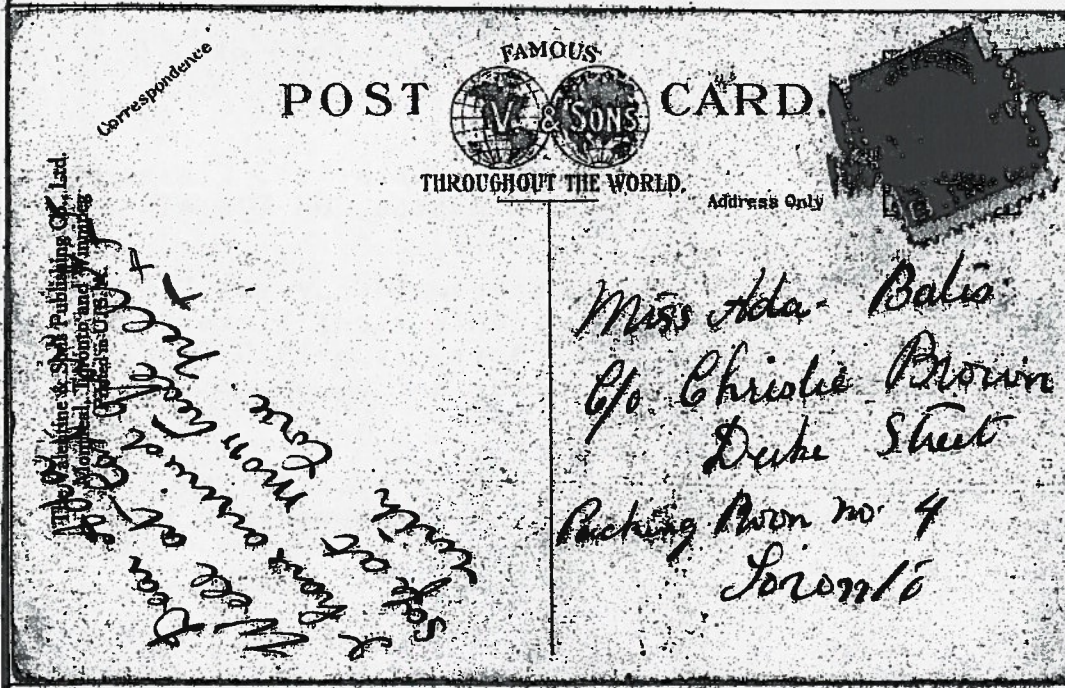 Correspondence
FAMOUS
POST CARD.
V. & SONS
THROUGHOUT THE WORLD.
Address Only
The Valentine & Sons Publishing Co., Ltd.
Montreal, Toronto and Winnipeg
Printed in
Dear
Well at
I have arrived
safe at Mom
with love
Miss Ada Balis
C/o Christie Brown
Duke Street
Packing Room no 4
Toronto